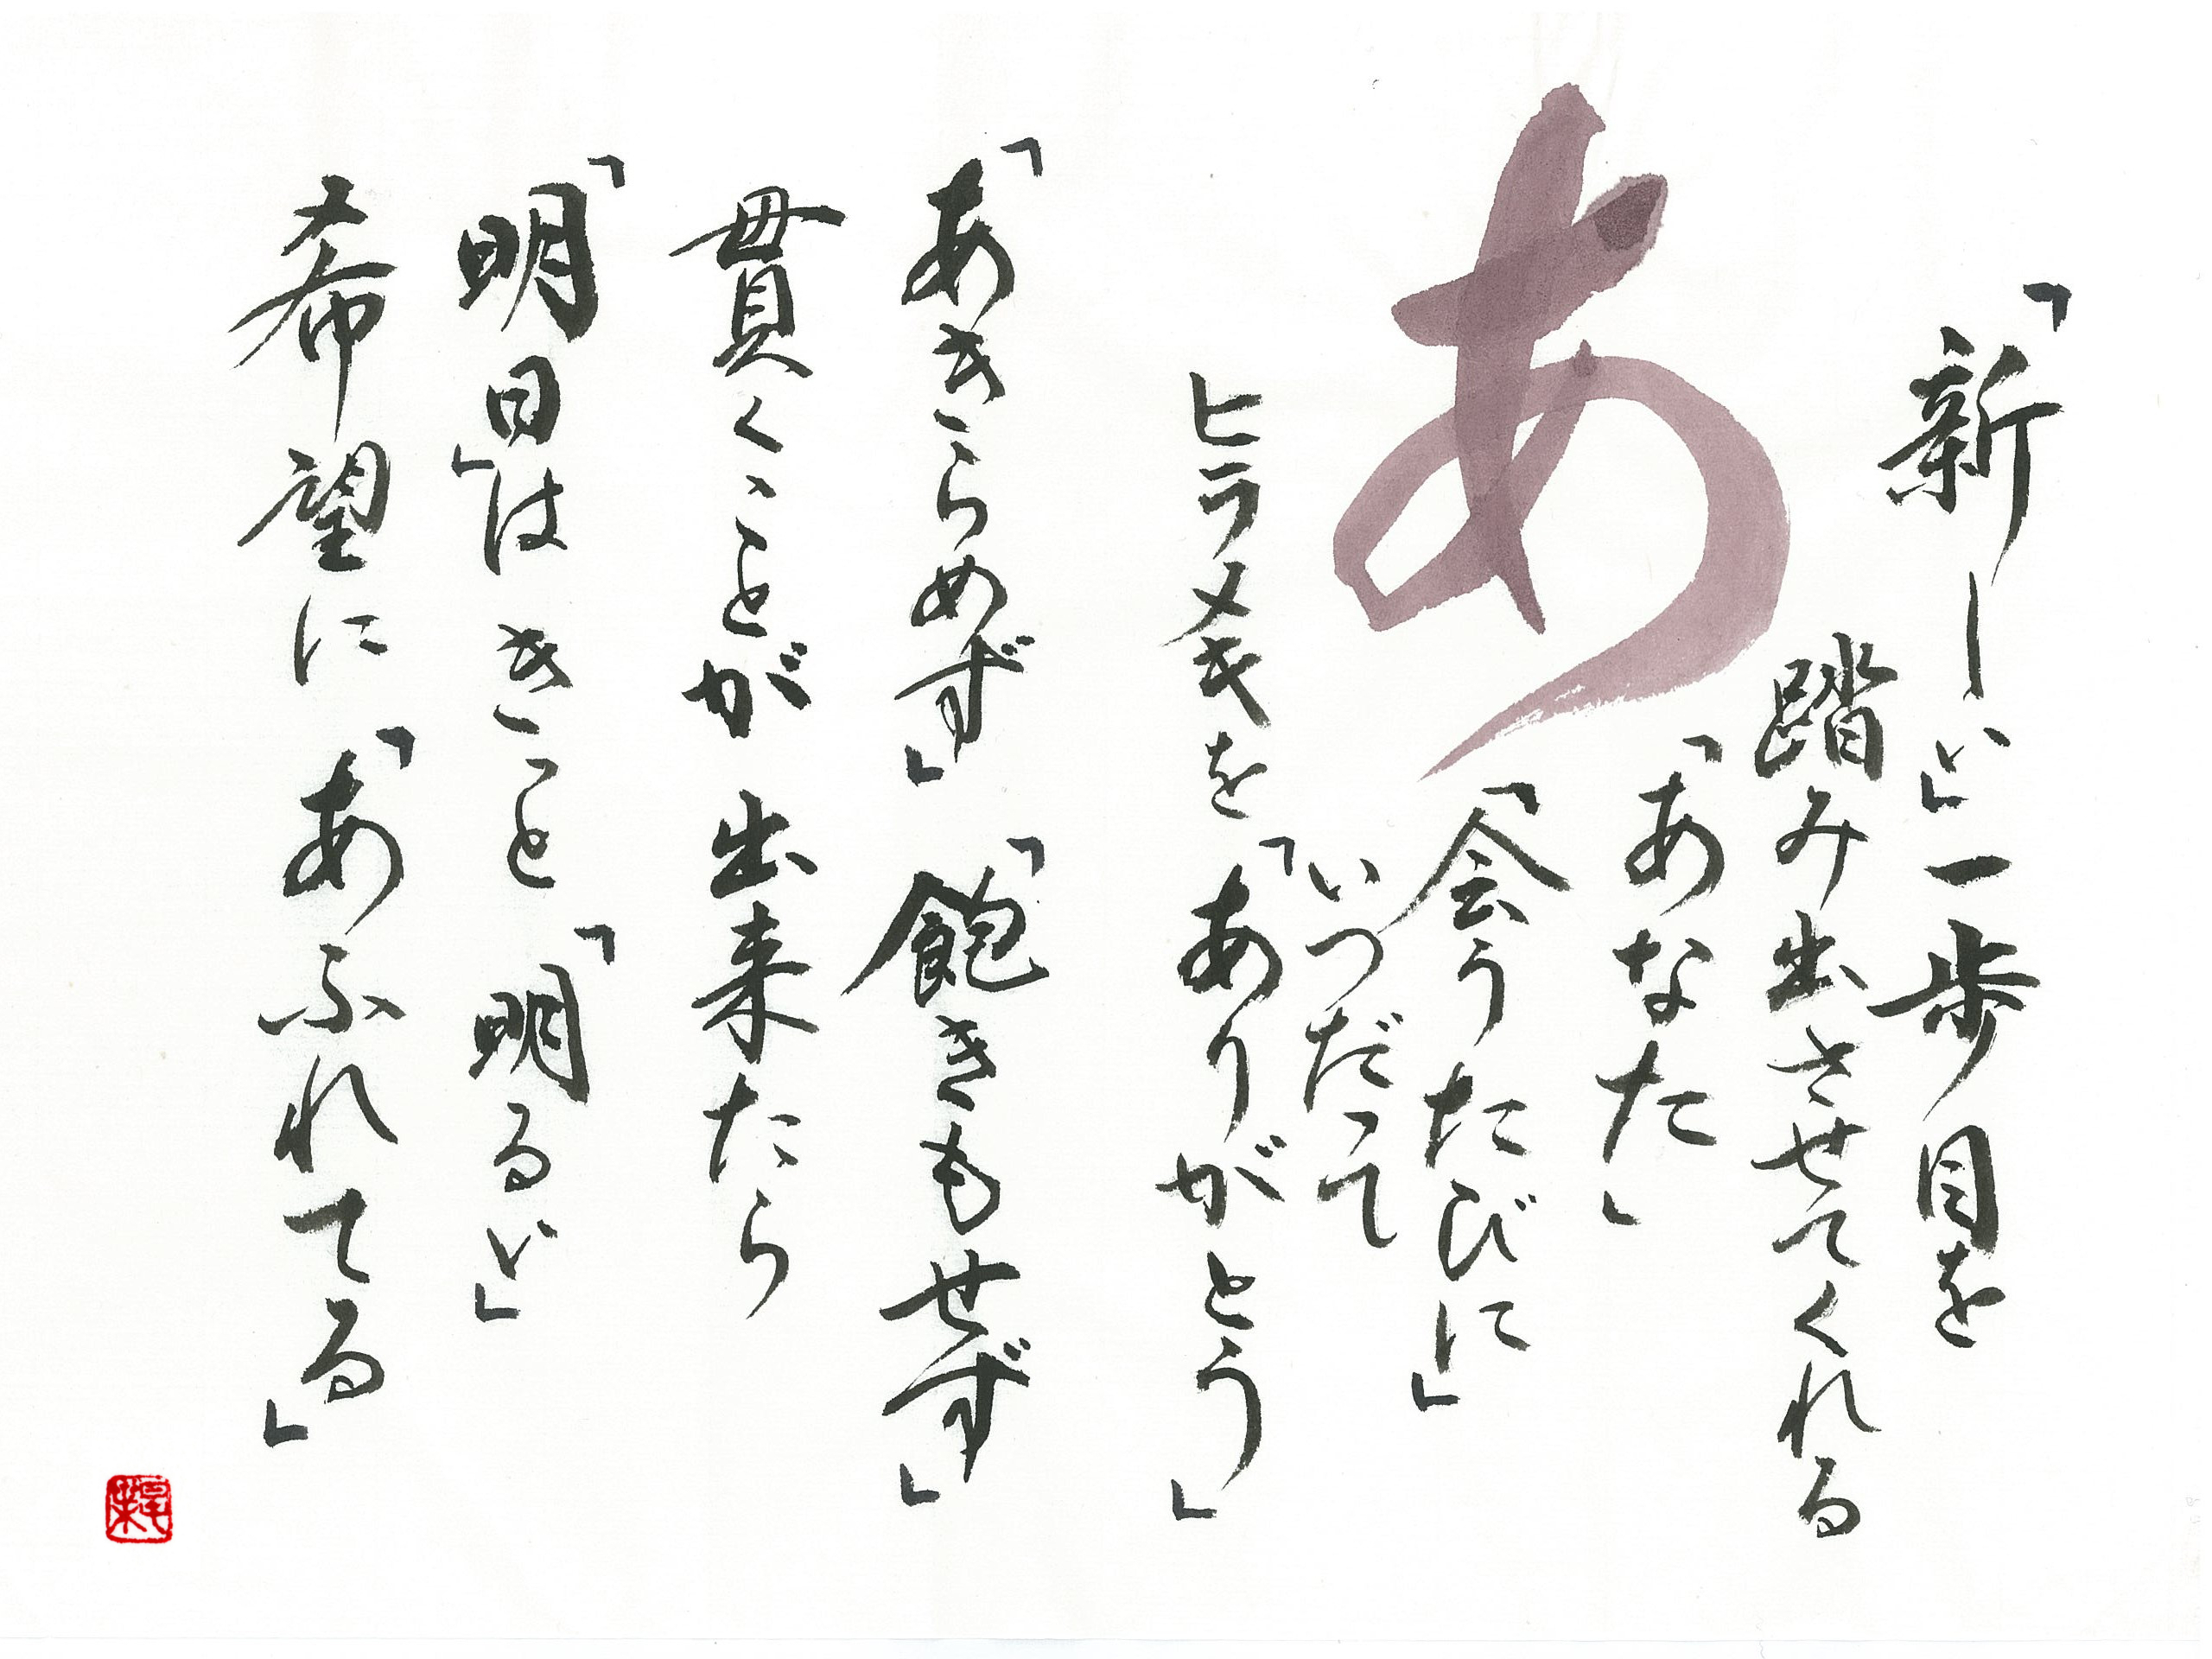 「新しい」一歩目を
踏み出させてくれる
「あなた」
あ
「会うたびに」
いつだって
ヒラメキを「ありがとう」
「あきらめず」「飽きもせず」
貫くことが出来たら
「明日」はきっと「明るい」
希望に「あふれてる」